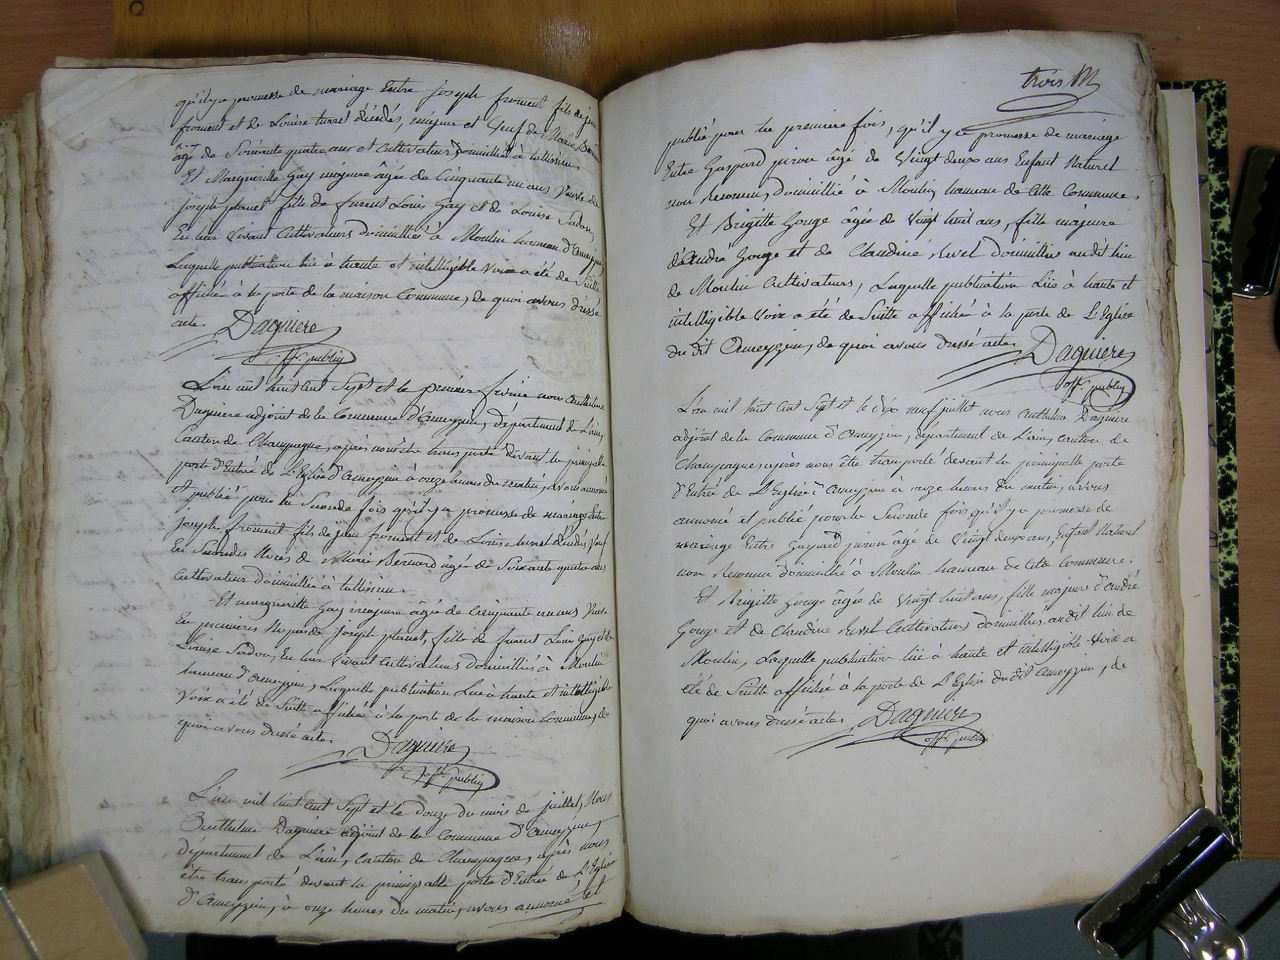 qu'il y a promesse de mariage Entre Joseph froment fils de jean
froment et de Louise turrel décédés, majeur et Veuf de Marie Bernard
âgé de Soixante quatre ans et Cultivateur domicilié à tallissieu.
Et Marguerite Gay majeure âgée de Cinquante un ans Veuve de
joseph fille de furent Louis Gay et de Louise
En leur Vivant Cultivateurs domiciliés à Moulin hameau d'Ameyzieu
Laquelle publication lüe à haute et intelligible Voix a été de Suitte
affichée à la porte de la maison Commune, de quoi avons dressé
acte. Daguiere
off. public
L'an mil huit cent Sept et le premier février nous Anthelme
Daguiere adjoint de la Commune d'Ameyzieu, département de L'ain,
Canton de Champagne, après nous être transporté devant la principalle
porte d'Entrée de L'Eglise d'Ameyzieu à onze heures du matin, avons annoncé
et publié pour la Seconde fois qu'il y a promesse de mariage Entre
joseph froment fils de jean froment et de Louise turrel décédés, Veuf
En Secondes Noces de Marie Bernard âgé de Soixante quatre ans
Cultivateur domicilié à tallissieu.
Et marguerite Gay majeure agée de Cinquante un ans Veuve
En premières Noces de Joseph fille de furent Louis Gay et de
Louise En leur Vivant Cultivateurs domiciliés à Moulin
hameau d'Ameyzieu, Laquelle publication Lüe à haute et intelligible
Voix a été de Suitte affichée à la porte de la maison Commune, de
quoi avons dressé acte. Daguiere
off. public
L'an mil huit cent Sept et le douze du mois de juillet, Nous
Anthelme Daguiere adjoint de la Commune d'Ameyzieu,
département de L'ain, canton de Champagne, après nous
être transporté devant la principalle porte d'Entrée de L'Eglise
d'Ameyzieu, à onze heures du matin, avons annoncé et
trois
publié pour la première fois, qu'il y a promesse de mariage
Entre Gaspard âgé de Vingt deux ans Enfant Naturel
non Reconnu, domicilié à Moulin hameau de Cette Commune.
Et Brigitte Gouge âgée de Vingt huit ans, fille majeure
d'André Gouge et de Claudine domiciliés au dit lieu
de Moulin Cultivateurs, Laquelle publication Lüe à haute et
intelligible Voix a été de Suitte affichée à la porte de L'Eglise
du dit Ameyzieu, de quoi avons dressé acte. Daguiere
off. public
L'an mil huit cent Sept et le dix neuf juillet nous Anthelme Daguiere
adjoint de la Commune d'Ameyzieu, département de L'ain, canton de
Champagne, après nous être transporté devant la principalle porte
d'Entrée de L'Eglise d'Ameyzieu à onze heures du matin, avons
annoncé et publié pour la Seconde fois qu'il y a promesse de
mariage Entre Gaspard âgé de Vingt deux ans, Enfant Naturel
non Reconnu domicilié à Moulin hameau de Cette Commune.
Et Brigitte Gouge âgée de Vingt huit ans, fille majeure d'André
Gouge et de Claudine Cultivateurs domiciliés au dit lieu de
Moulin, Laquelle publication lüe à haute et intelligible Voix a
été de Suitte affichée à la porte de L'Eglise du dit Ameyzieu, de
quoi avons dressé acte. Daguiere
off. public